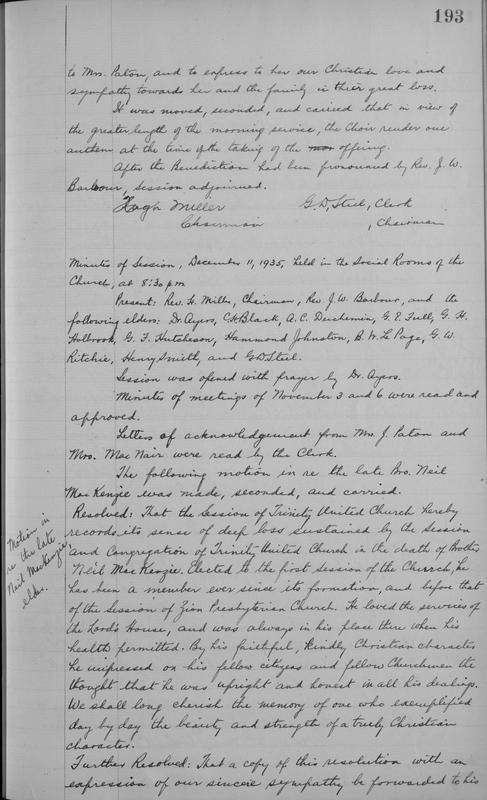 193
to Mrs. Paton, and to express to her our Christian love and
sympathy towards her and the family in their great loss.
It was moved, seconded, and carried that in view of
the greater length of the morning service, the Choir render one
anthem at the time of the taking of the offering.
After the Benediction had been pronounced by Rev. J. W.
Barbour, session adjourned.
Hugh Miller G. D. Steel, Clerk
Chairman , Chairman
Minutes of Session, December 11, 1935, held in the Social Rooms of the
Church, at 8:30 p.m.
Present: Rev. H. Miller, Chairman, Rev. J. W. Barbour, and the
following elders: Dr. Ayers, C. H. Black, A. C. Deuchemin, G. E. Full, G. H.
Holbrook, G. F. Hutcheson, Hammond Johnston, B. W. Le Page, G. W.
Ritchie, Henry Smith, and G. D. Steel.
Session was opened with prayer by Dr. Ayers.
Minutes of meetings of November 3 and 6 were read and
approved.
Letters of acknowledgement from Mrs. J. Paton and
Mrs. MacNair were read by the Clerk.
The following motion in re the late Bro. Neil
MacKenzie was made, seconded, and carried.
Motion in
re the late
Neil MacKenzie,
elder.
Resolved: That the Session of Trinity United Church hereby
records its sense of deep loss sustained by the Session
and Congregation of Trinity United Church in the death of Brother
Neil MacKenzie. Elected to the first session of the Church, he
has been a member ever since its formation, and before that
of the Session of Zion Presbyterian Church. He loved the services of
the Lord's House, and was always in his place there when his
health permitted. By his faithful, kindly Christian character
he impressed on his fellow citizens and fellow Churchmen the
thought that he was upright and honest in all his dealings.
We shall long cherish the memory of one who exemplified
day by day the beauty and strength of a truly Christian
character.
Further Resolved: That a copy of this resolution with an
expression of our sincere sympathy be forwarded to his